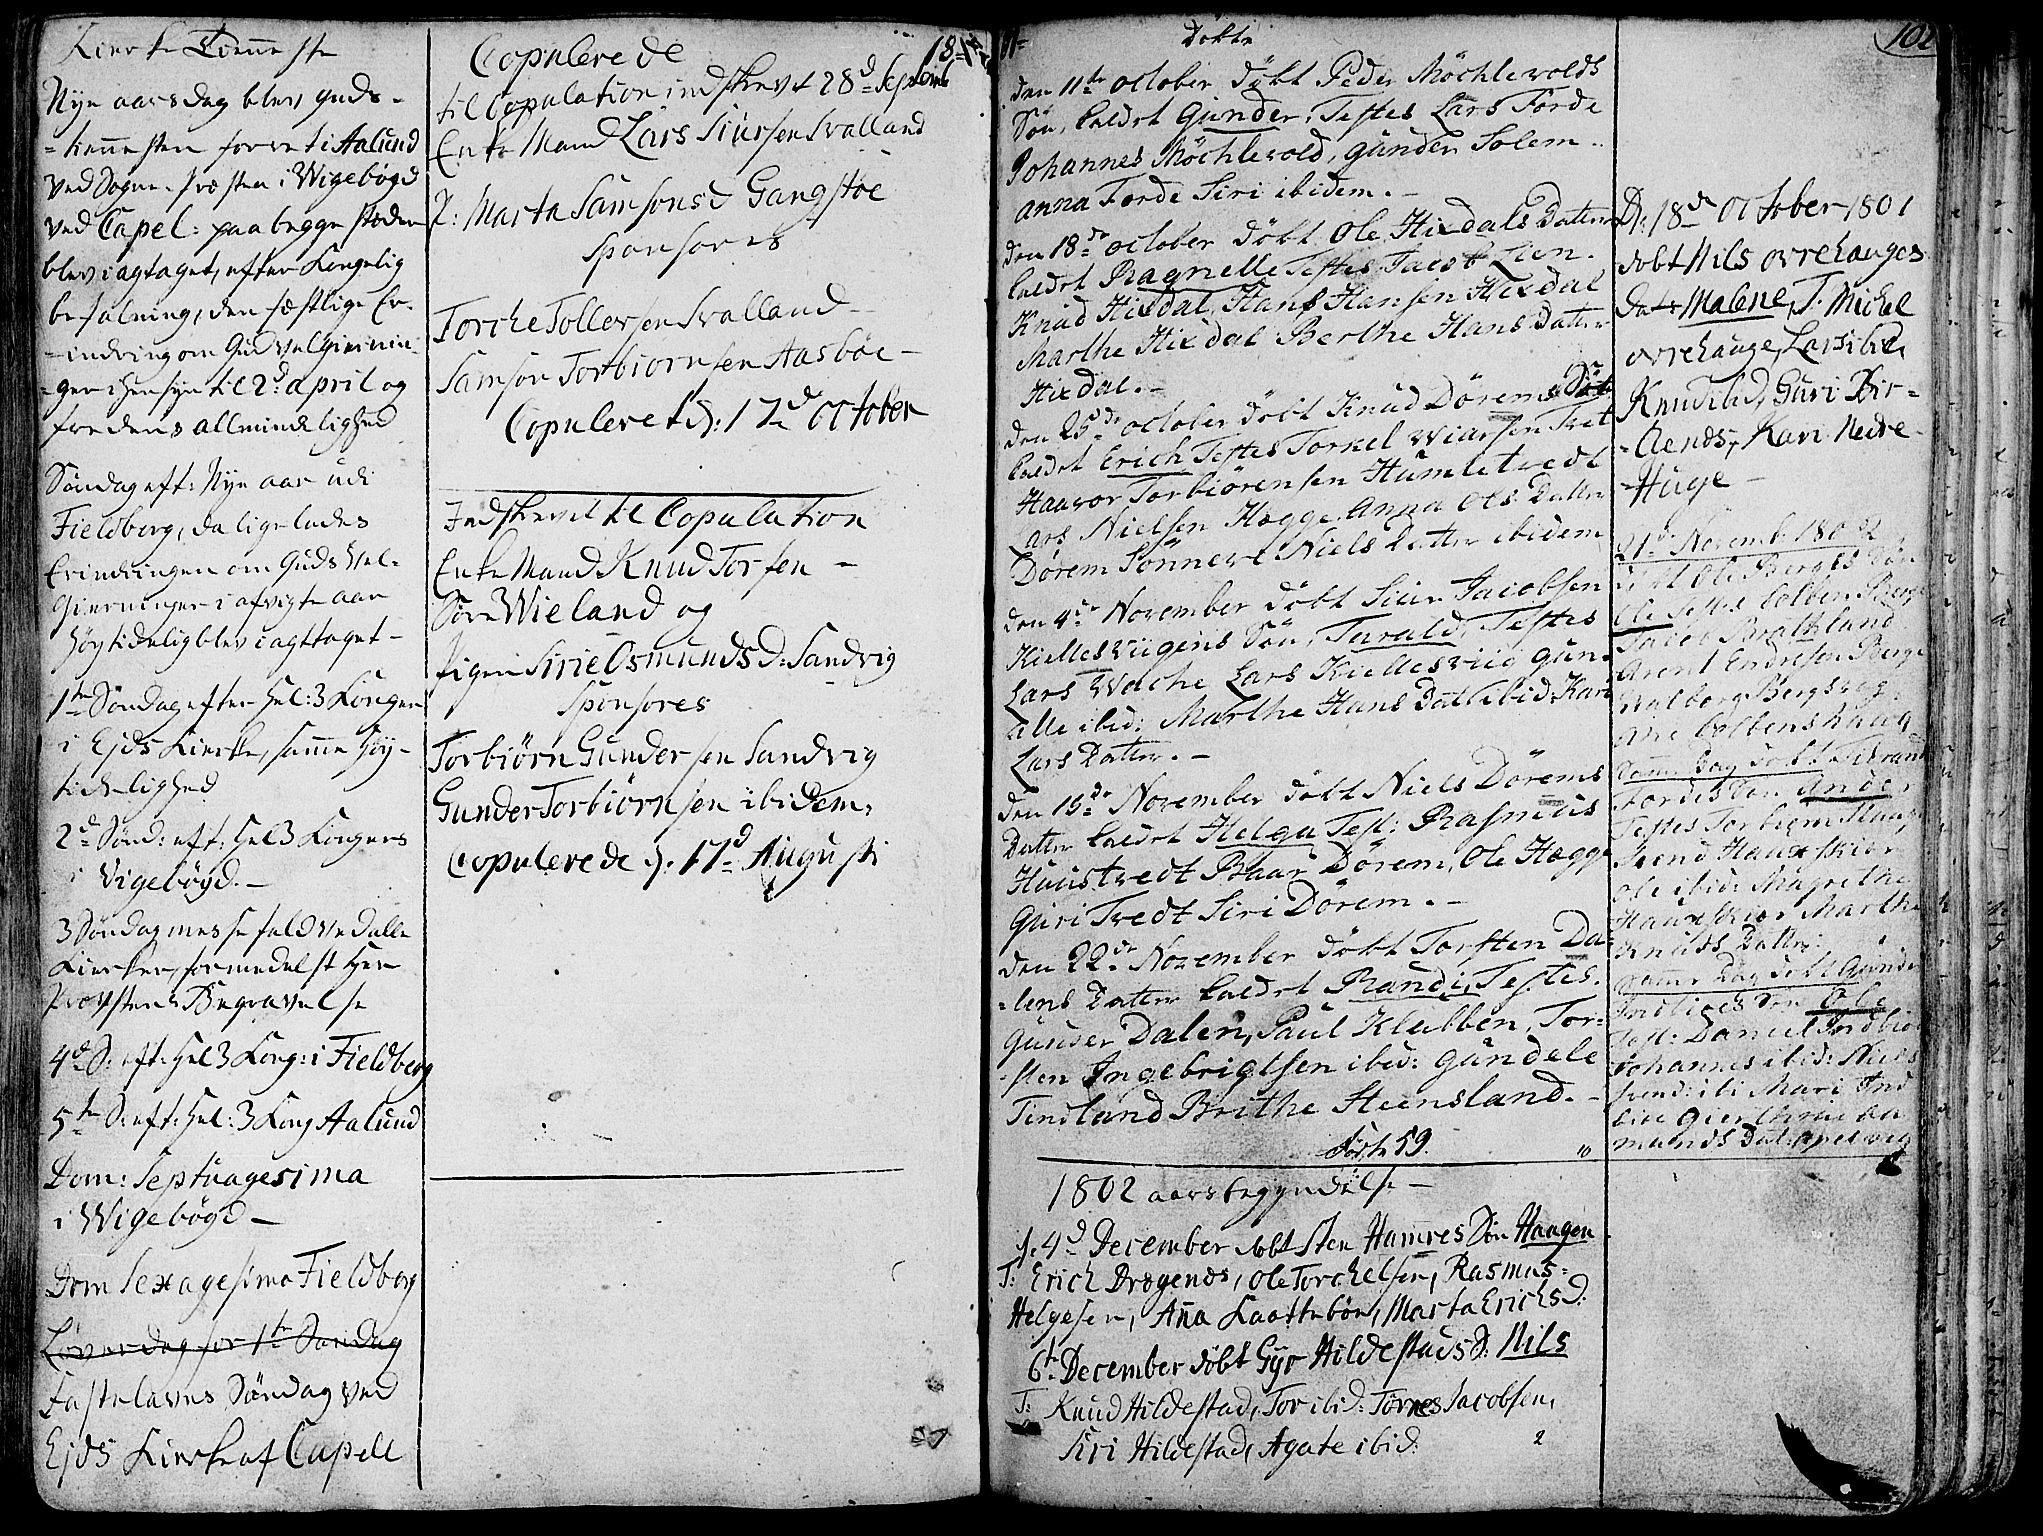 Kierke Tienneste
Nye aarsdag blev guds-
-tiennesten forret i Aalund
ved Sogne-Præsten i Wigebøgd
ved Capel: paa begge stæder
blev iagtaget, efter Kongelig
befalning, den festlige Er-
-indring om Guds velgierning-
-ger i hensyn til 2d april og
fredens allmindelighed
Søndag eft: Nye aar udi
Fieldberg, da ligeledes
Erindringen om Guds Vel-
gierninger i afvigte aar
høytidelig blev iagttaget-
1te Søndag efter Hel: 3 Konger
i Ejds Kierke, samme høy-
tidelighed
2d Sønd: eft: Hel 3 Kongers
i Vigebøyd.-
3 Søndag messefald ved alle
Kierker, formedelst Herr
Provstens Begravelse
4d S: eft: Hel 3 Kong: i Fieldberg
5te S: eft: Hel: 3 Kong Aalund
Dom: Septuagesima
i Wigebøgd-
Dom Sexagesima Fieldberg
Løverdag for 1te Søndag
Fastelavns Søndag ved
Ejds Kierke af Capell
Copulerede
18
til Copulation indskrevet 28d Septemb
Enke Mand Lars Siursen Svalland
P: Marta Samsons d Gangstøe
Sponsores
Torche Tollevsen Svalland-
Samson Torbiornsen Aasbøe-
Copuleret d: 17d October
Indskrevet til Copulation
Enke Mand Knud Torsen-
Søre Wieland og
Pigen Sirie Osmunds D: Sandvig
Sponsores
Torbiørn Gundersen Sandvig
Gunder Torbiørnsen ibidem,
Copulerede d: 17d Augusti
01-
Døbte
102
den 11te October døbt Peder Möchlevolds
Søn, kaldet Gunder, Testes Lars Førde
Johannes Möchlevold, Gunder Solem..
Anna Førde Siri ibidem.-
den 18de October døbt Ole Hixdals Datter
kaldet Ragnelle Testes Jacob Lien.
Knud Hixdal, Hans Hansen Hixdal
Marthe Hixdal Berthe Hans Datter
Hixdal.-
den 25de October døbt Knud Dörems Sön
kaldet Erich, Testes Torkel Wiarsen Tvet
Haavor Torbiörensen Humletvedt
Lars Nielsen Hægge, Anna Ols Datter
Dörem Sönneve Niels Datter ibidem
den 4de November döbt Siur Jacobsen
Kiellesviigens Sön, Tarald, Testes
Lars Wache Lars Kiellesviig Gun-
ille ibid: Marthe Hans Datt ibid. Kari
Lars Datter.-
den 15de November döbt Niels Dörems
Datter kaldet Helga Test: Rasmus
Huustvedt Baar Dörem, Ole Hægge
Guri Tvedt Siri Dörem.-
den 22de November döbt Torsten Da-
-lens Datter kaldet Randi, Testes.
Gunder Dalen, Paul Klubben, Tor-
-sten Ingebrigtsen ibid: Gundele
Tindland Brithe Steensland.-
Födte 59.
10
1802 aars begyndelse-
d. 4d December döbt Sten Hamres Søn Haagen
T: Erich Drøgends, Ole Torchelsen, Rasmus
Helgesen, Anna Laattebøn, Marta Erichs d:
6te December döbt Gyr Hildestads S. Nils
T: Knud Hildestad, Tor ibid: Tørres Jacobsen,
Siri Hildestad, Agate ibid:
2
D: 18de October 1801
døbt Nils Ovrehauges
Dat: Malene, T. Mickel
Ovrehauge, Lars ibid,
Knud ibid, Guri
-lends, Kari Nedre-
-Huge-
21de Novemb 180
döbt Ole Berges Søn
Ole Testes Colben Berge
Jacob
Arent Endresen Berge
Valborg Bergsveg
Ane Colbens Haug
Samme Dag döbt
Førdes Søn Ander
Testes Torbiørn Haug
Svend Hauxskier
Ole ibid: Magrethe
Hauxskier Marthe
Knuds Datter
Samme Dag döbt Gunder
Søn Ole
Test: Daniel
Johannes ibid: Niels
Svend: ibi Mari Ind